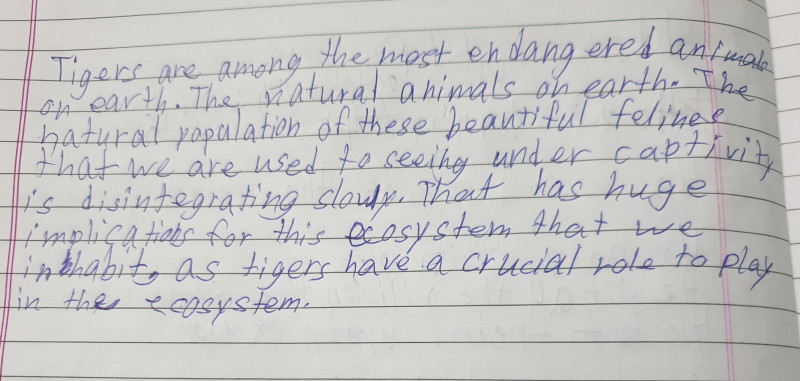 Tigers are among the most endangered animals
on earth. The natural animals on earth. The
natural population of these beautiful felines
that we are used to seeing under captivity
is disintegrating slowly. That has huge
implications for this ecosystem that we
inhabit, as tigers have a crucial role to play
in the ecosystem.